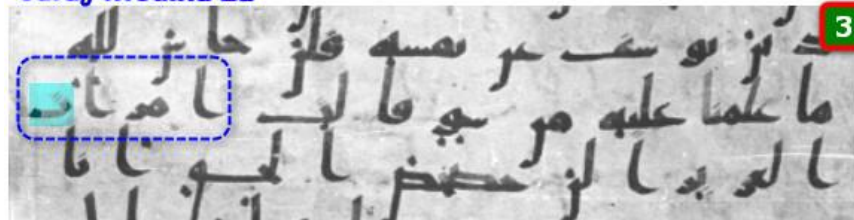 3
د تن يوسف عن نفسه قلن حاش لله
ما علمنا عليه من سو قالت امرات
العزيز الن حصحص الحق انا